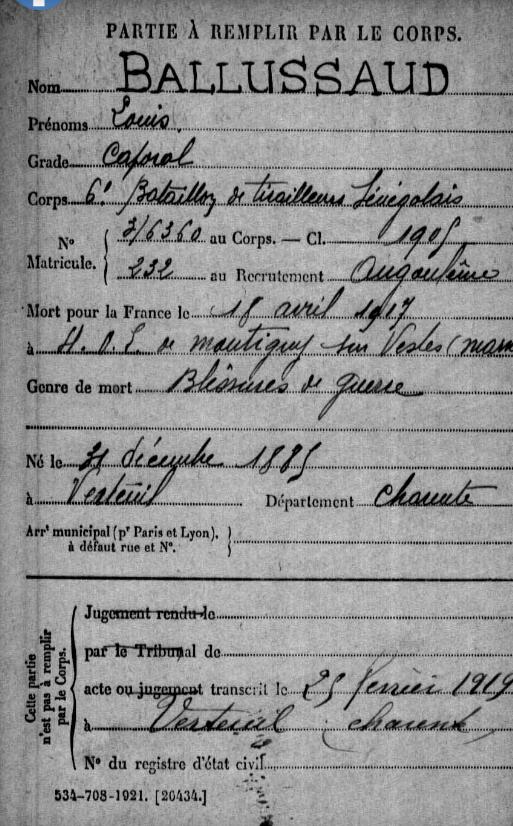 PARTIE À REMPLIR PAR LE CORPS.
Nom BALLUSSAUD
Prénoms Louis
Grade Caporal
Corps 6e Bataillon de tirailleurs Sénégalais
N° Matricule. { 3/6360 au Corps. — Cl. 1905
232 au Recrutement Angoulême
Mort pour la France le 18 avril 1917
à H. O. E. de montigny sur Vesles (marn
Genre de mort Blessures de guerre
Né le 31 décembre 1885
à Verteuil Département Charente
Arrt municipal (pr Paris et Lyon), }
à défaut rue et N°.
Cette partie n'est pas à remplir par le Corps.
Jugement rendu le
par le Tribunal de
acte ou jugement transcrit le 25 février 1919
à Verteuil (charente)
N° du registre d'état civil
534-708-1921. [26434.]